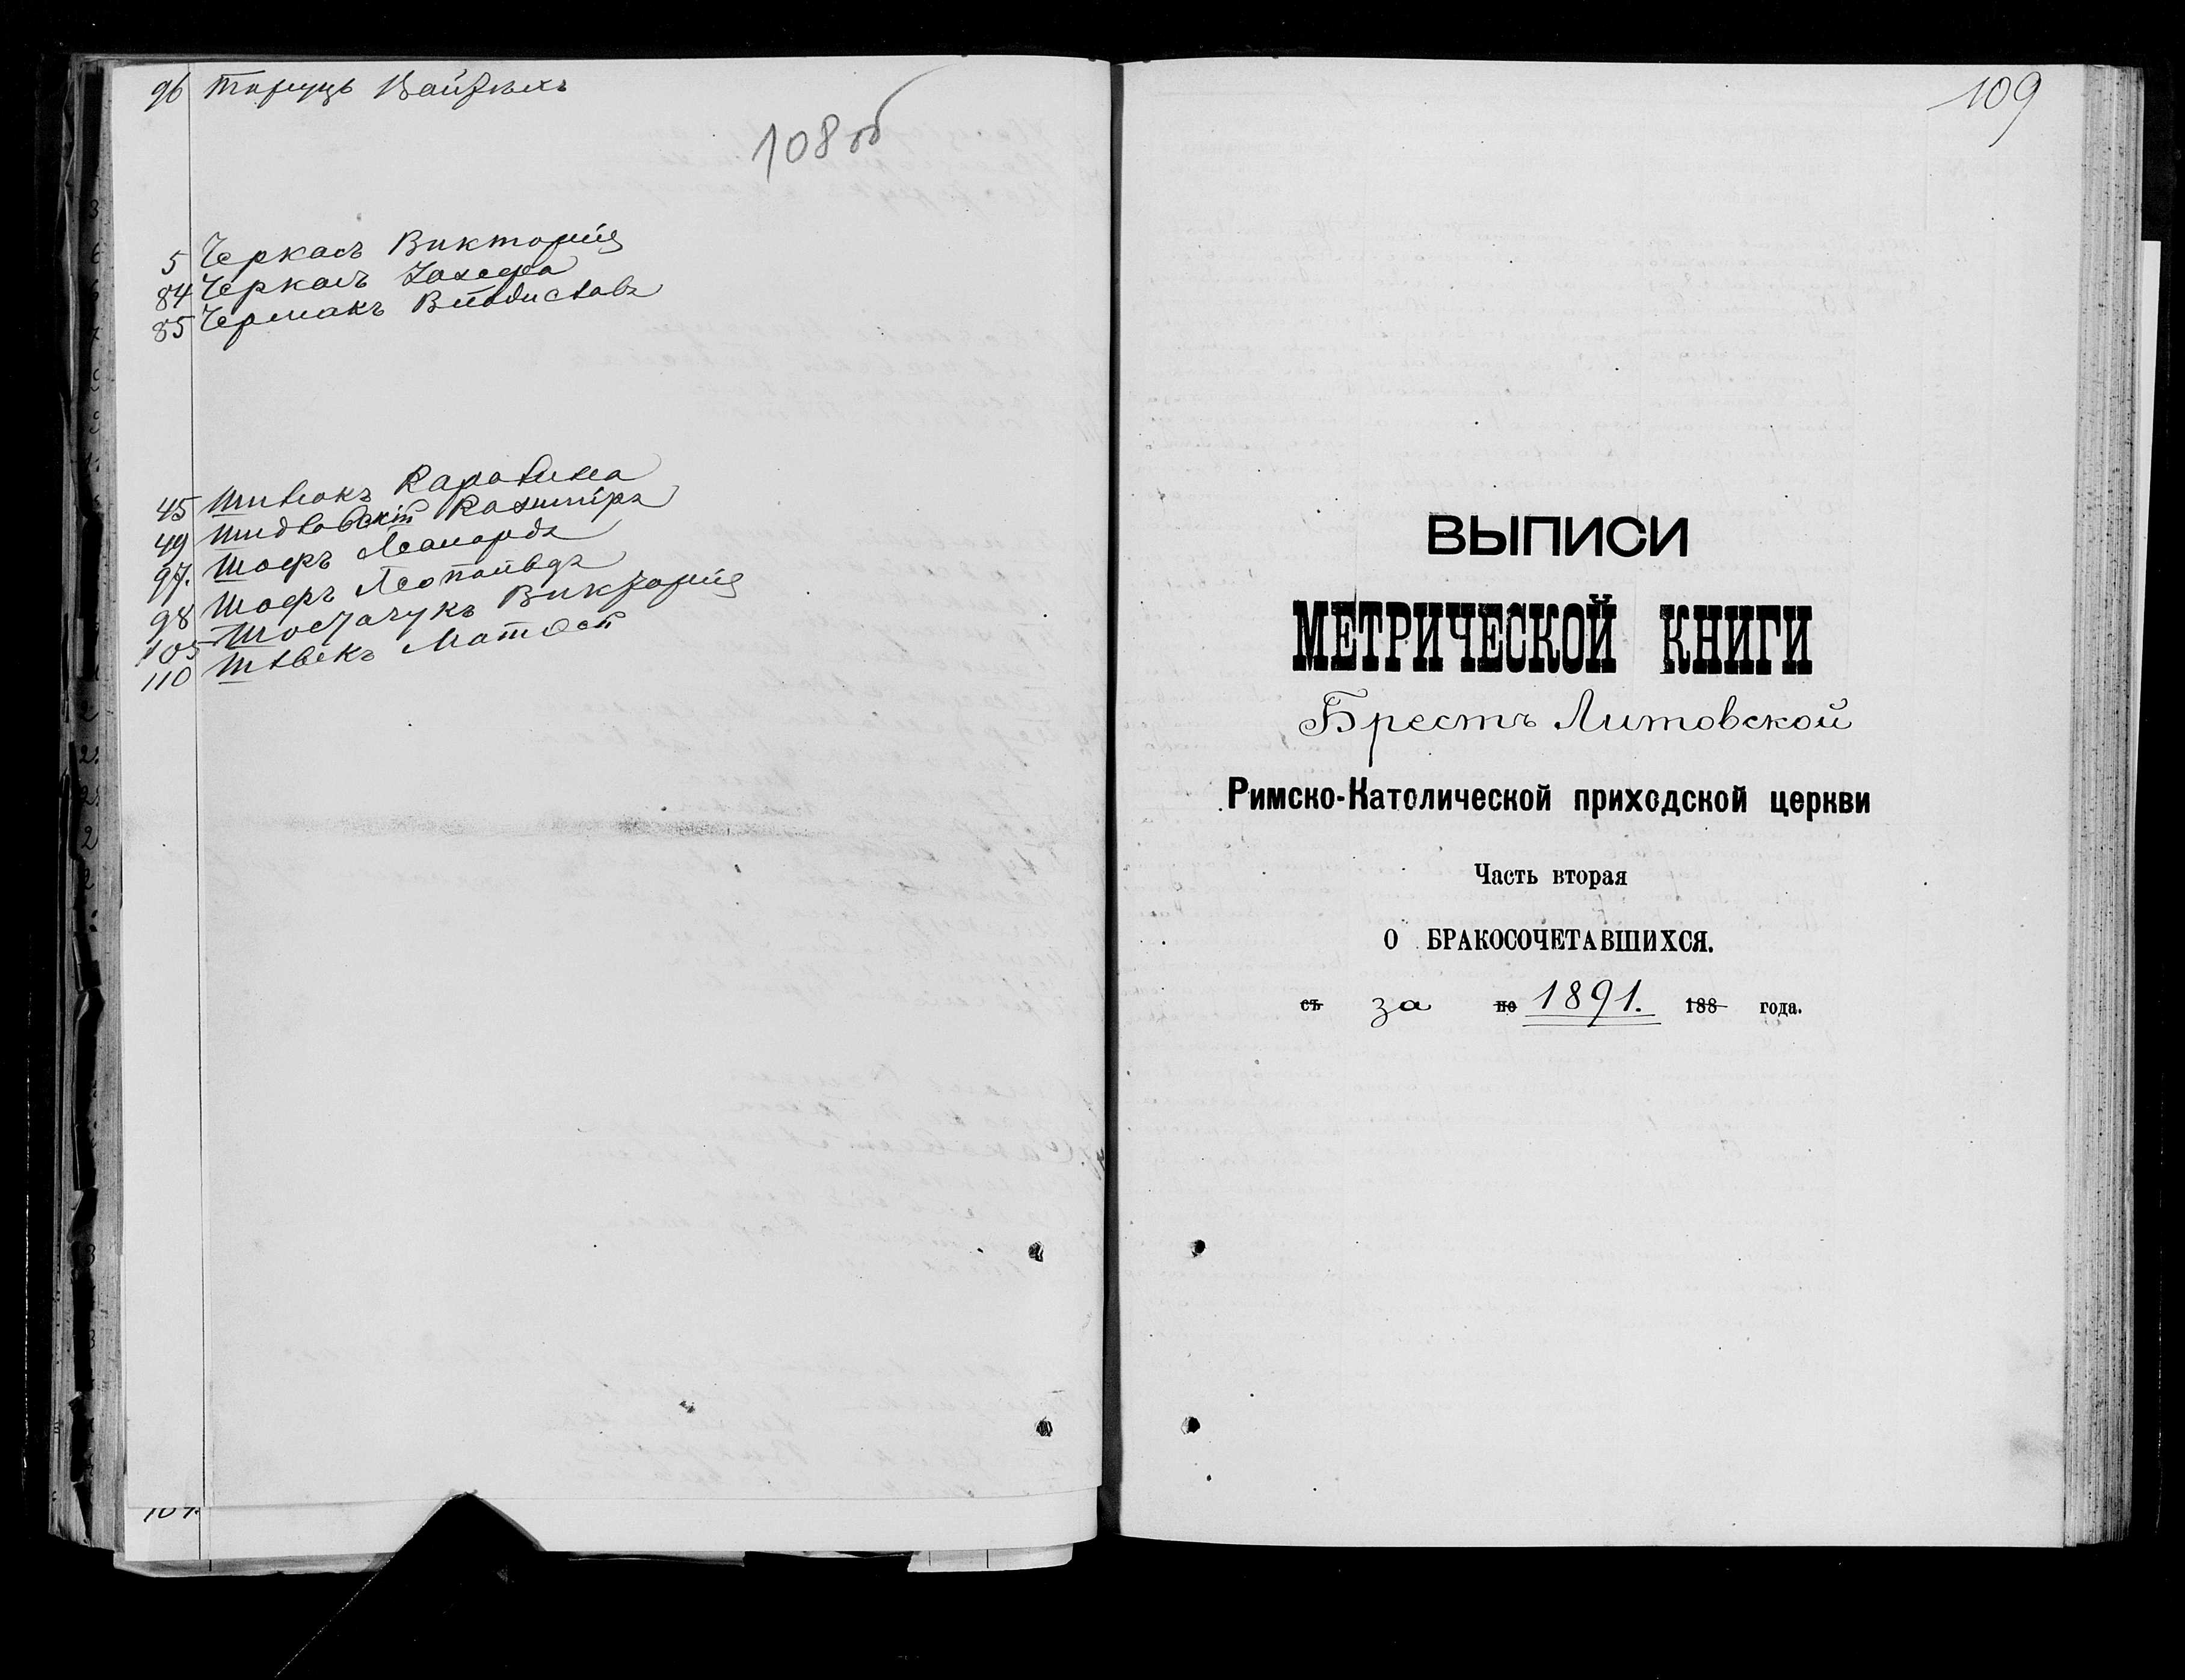 96 Тарцуць Войцѣхъ
108 об
5 Черкасъ Викторія
84 Черкасъ Іозефа
85 Чермакъ Владиславъ
45 Шивлокъ Каролина
49 Шидловскій Казиміръ
97. Шоефъ Леонардъ
98 Шоефъ Леопольдъ
105 Шостачукъ Викторія
110 Матѳей
109
ВЫПИСИ
МЕТРИЧЕСКОЙ КНИГИ
Брестъ Литовской
Римско-Католической приходской церкви
Часть вторая
О БРАКОСОЧЕТАВШИХСЯ.
съ за по 1891. 188 года.